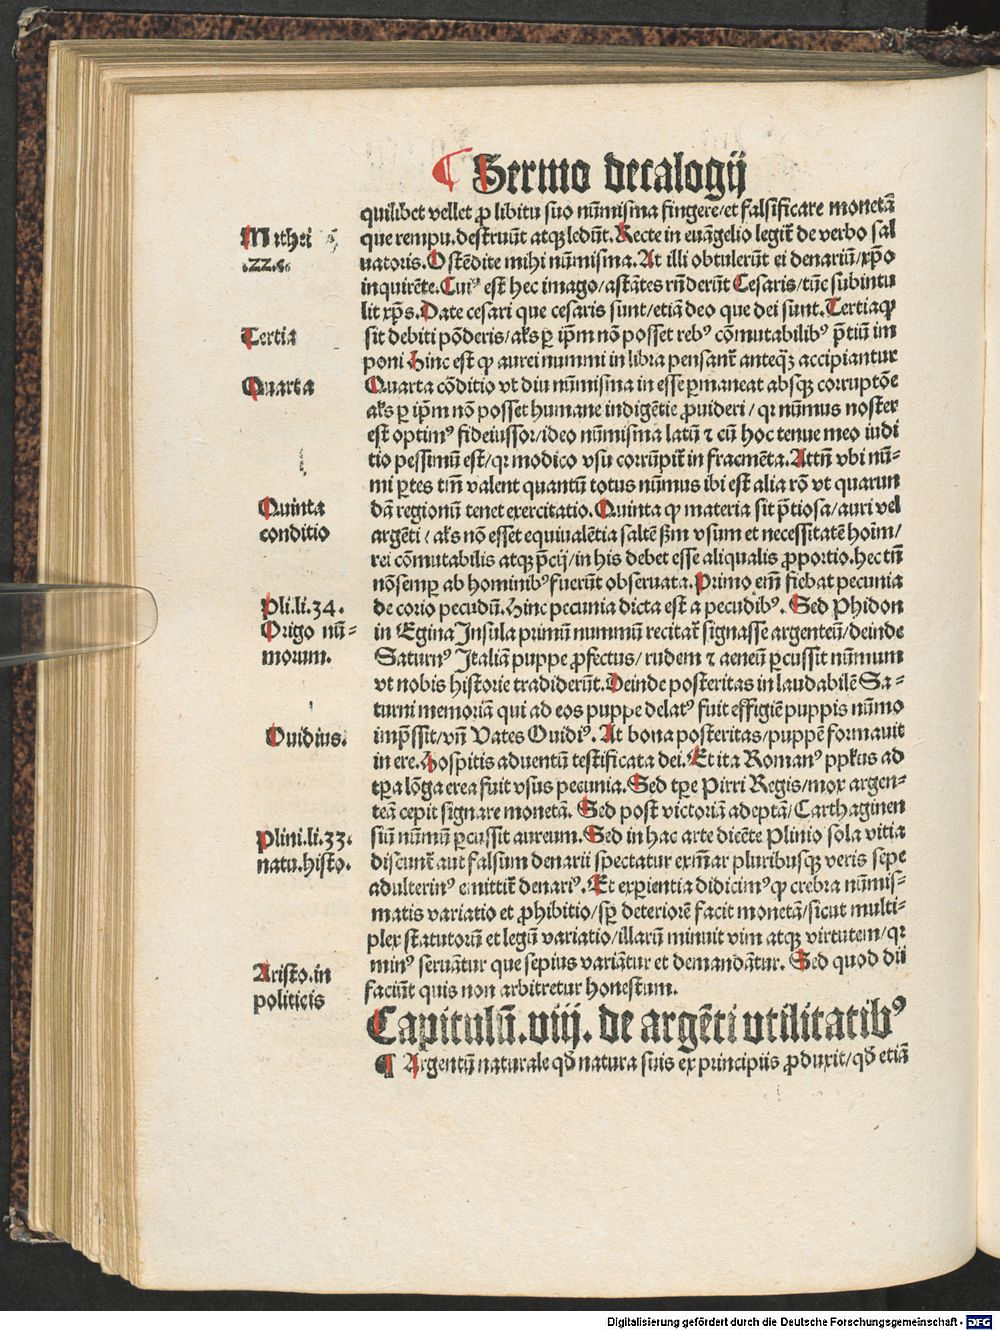 ¶ Sermo decalogij
quilibet vellet ꝓ libitu suo nūmisma fingere/et falsificare monetā
Mathei
que rempu. destruūt atqꝫ ledūt. Recte in euāgelio legit᷑ de verbo sal
.22.c.
uatoris. Ostēdite mihi nūmisma. At illi obtulerūt ei denariū/xp̄o
inquirēte. Cuiꝰ est hec imago/astātes rn̄derūt Cesaris/tūc subintu
lit xp̄s. Date cesari que cesaris sunt/etiā deo que dei sunt. Tertia qꝫ
Tertia
sit debiti pōderis/al's ꝑ ip̄m nō posset rebꝰ cōmutabilibꝰ p̄tiū im
poni Hinc est ꝙ aurei nummi in libra pensant᷑ anteqꝫ̄ accipiantur
Quarta
Quarta cōditio vt diu nūmisma in esse ꝑmaneat absqꝫ corruptōe
al's ꝑ ip̄m nō posset humane indigētie ꝓuideri/qꝛ nūmus noster
est optimꝰ fideiussor/ideo nūmisma latū ⁊ cū hoc tenue meo iudi
tio pessimū est/qꝛ modico vsu corrūpit᷑ in fracmēta. Attn̄ vbi nū-
mi ꝑtes tm̄ valent quantū totus nūmus ibi est alia rō vt quarun
Quinta
dā regionū tenet exercitatio. Quinta ꝙ materia sit p̄tiosa/auri vel
conditio
argēti/al's nō esset equiualētia saltē ẜm vsum et necessitatē hoīm/
rei cōmutabilis atqꝫ p̄cij/in his debet esse aliqualis ꝓportio. hec tn̄
nō semꝑ ab hominibꝰ fuerūt obseruata. Primo em̄ fiebat pecunia
Pli.li.34.
de corio pecudū. Hinc pecunia dicta est a pecudibꝰ. Sed Phidon
Origo nū-
in Egina Insula primū nummū recitat᷑ signasse argenteū/deinde
morum.
Saturnꝰ Italiā puppe ꝓfectus/rudem ⁊ aeneū ꝑcussit nūmum
vt nobis historie tradiderūt. Deinde posteritas in laudabilē Sa-
turni memoriā qui ad eos puppe delatꝰ fuit effigiē puppis nūmo
Ouidius.
imp̄ssit/vn̄ Vates Ouidiꝰ. At bona posteritas/puppē formauit
in ere. Hospitis aduentū testificata dei. Et ita Romanꝰ pp̄l'us ad
tꝑa lōga erea fuit vsus pecunia. Sed tꝑe Pirri Regis/mox argen-
teā cepit signare monetā. Sed post victoriā adeptā/Carthaginen
Plini.li.33.
siū nūmū ꝑcussit aureum. Sed in hac arte dicēte Plinio sola vitia
natu.histo.
discunt᷑ aut falsum denarii spectatur exm̄ar pluribusqꝫ veris sepe
adulterinꝰ emittit᷑ denariꝰ. Et exꝑientia didicimꝰ ꝙ crebra nūmis-
matis variatio et ꝓhibitio/sꝑ deteriorē facit monetā/sicut multi-
plex statutorū et legū variatio/illarū minuit vim atqꝫ virtutem/qꝛ
Aristo.in
minꝰ seruātur que sepius variātur et demandātur. Sed quod dii
politicis
faciūt quis non arbitretur honestum.
Capitulū.viij. de argēti vtilitatibꝰ
¶ Argentū naturale qd̄ natura suis ex principiis ꝓduxit/qd̄ etiā
Digitalisierung gefördert durch die Deutsche Forschungsgemeinschaft - DFG